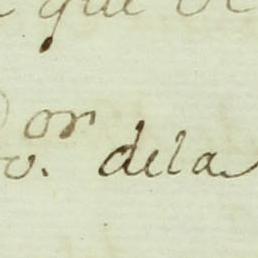 que
or
v. dela